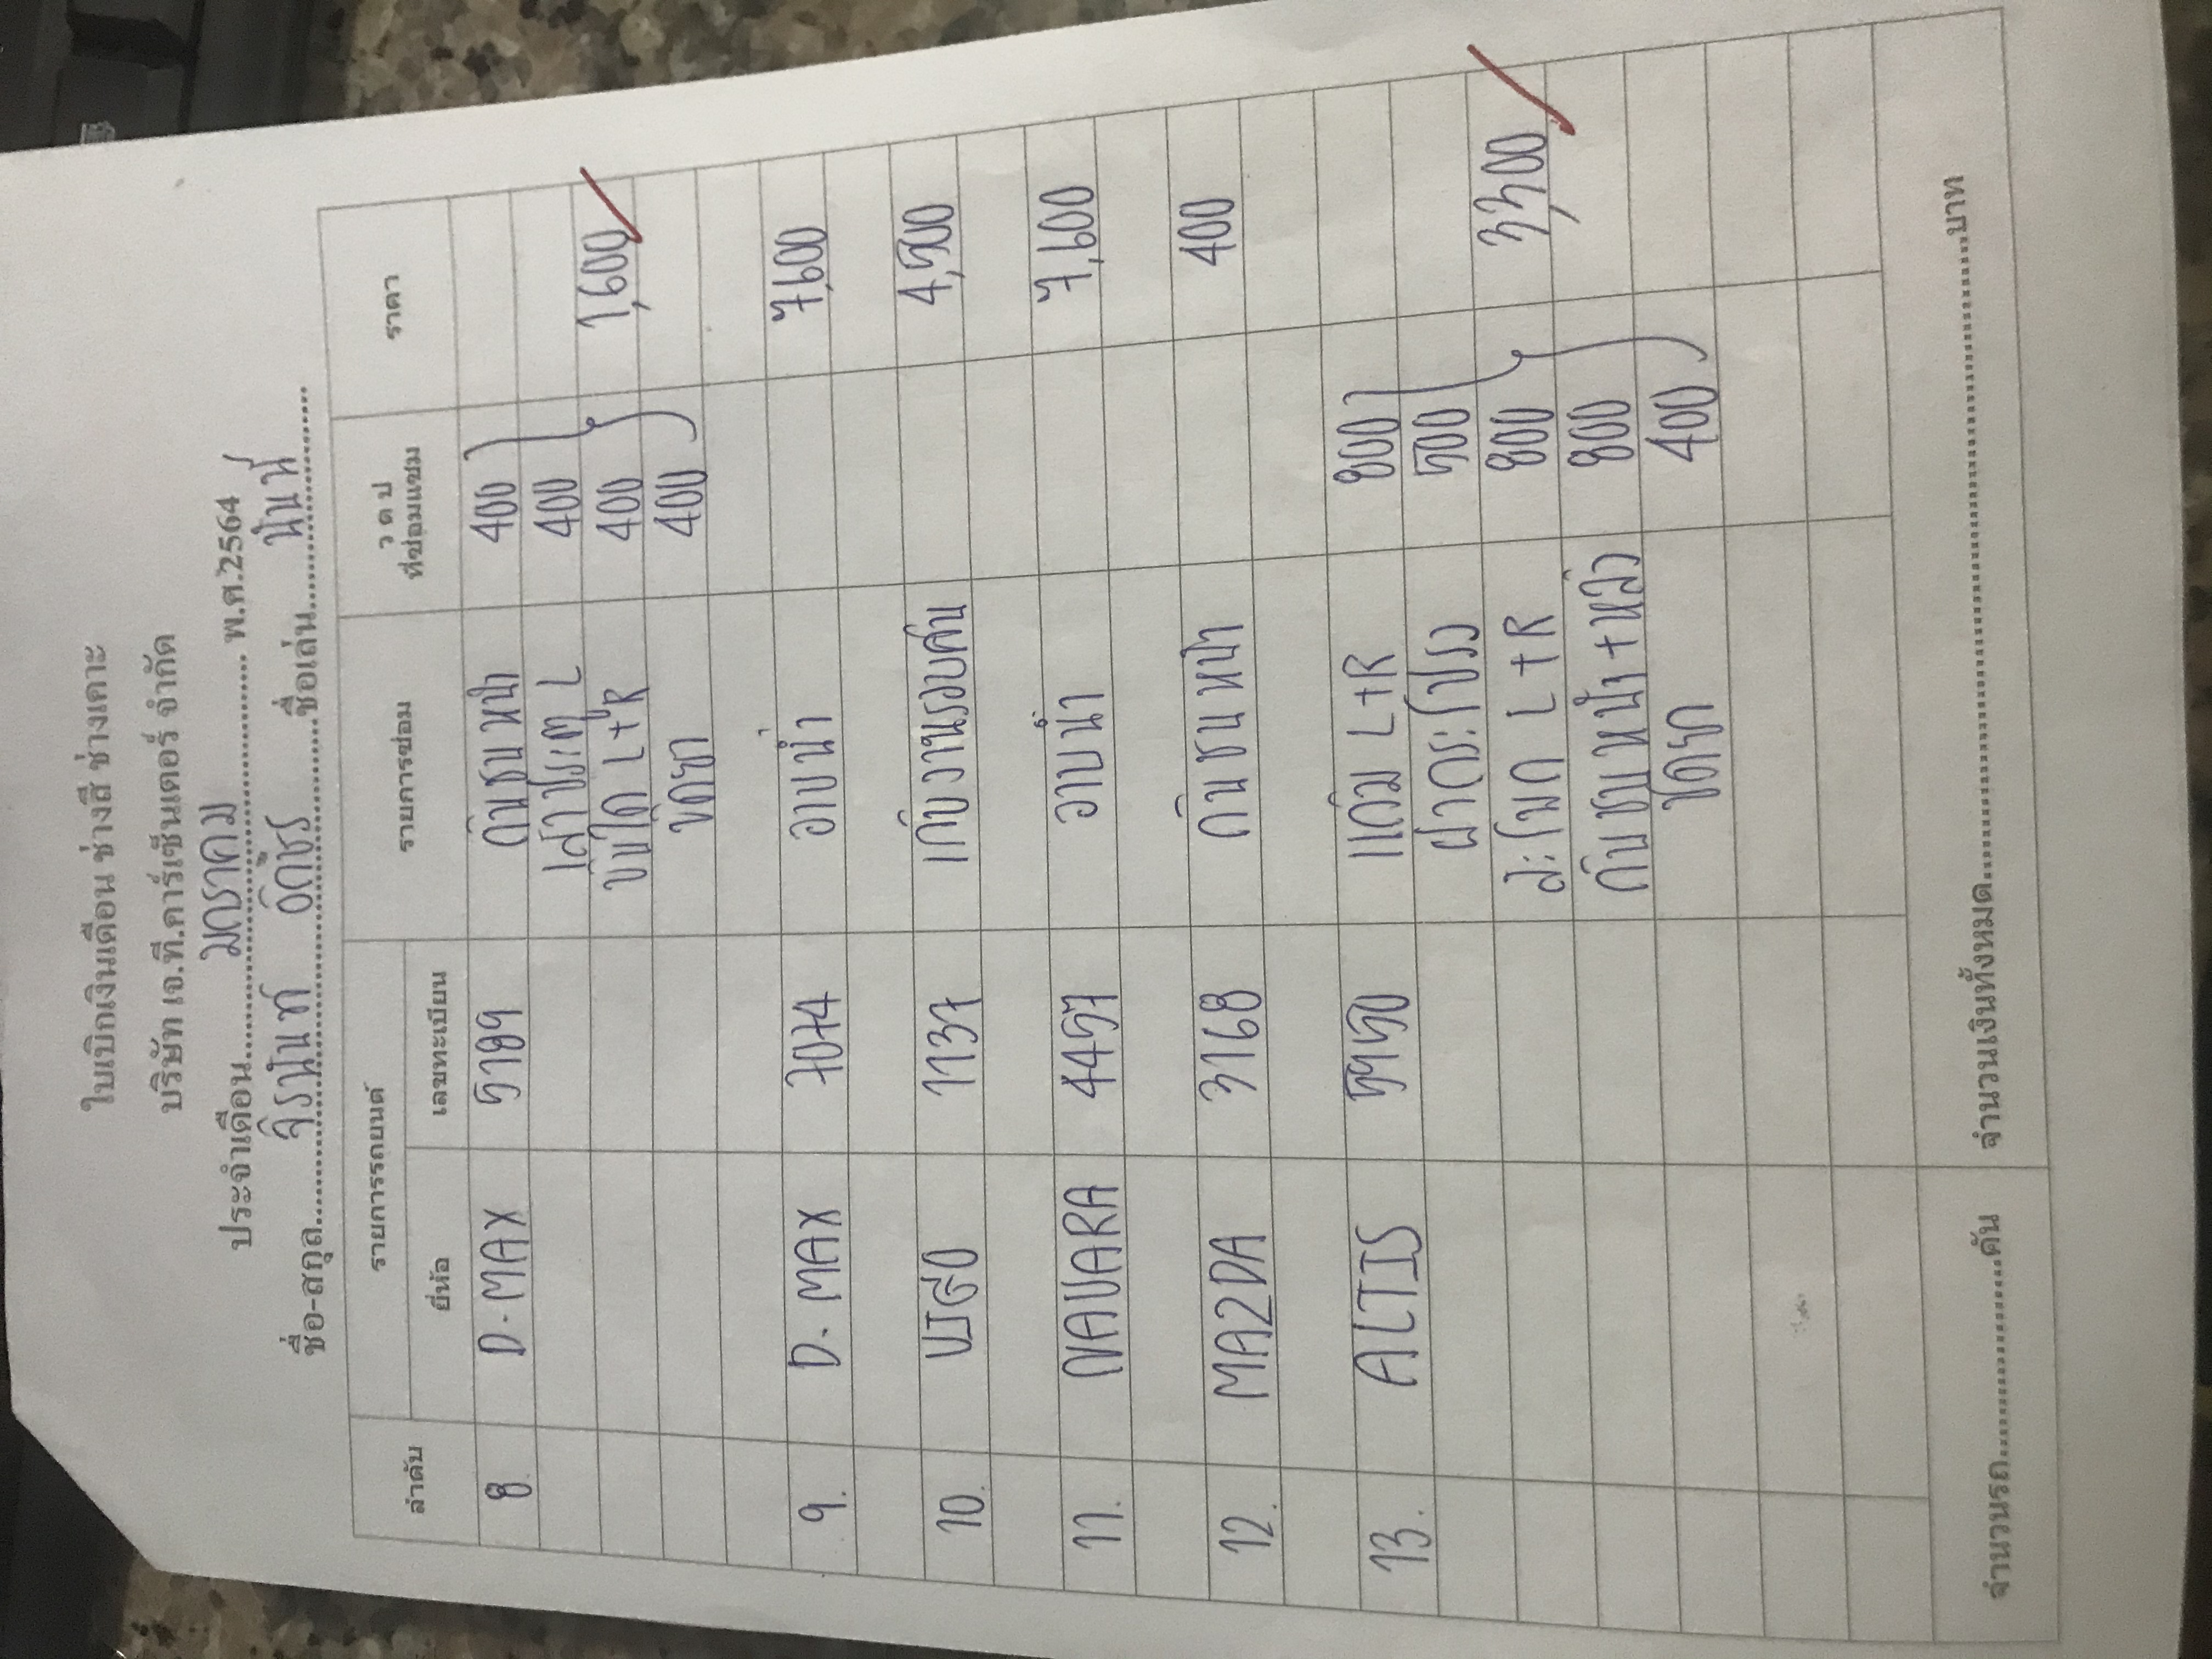 ใบเบิกเงินเดือน ช่างสี ช่างเคาะ
บริษัท เจ.ที.คาร์เซ็นเตอร์ จำกัด
ประจำเดือน มกราคม พ.ศ.2564
ชื่อ-สกุล จิรนันท์ ชื่อเล่น นันท์
ลำดับ รายการรถยนต์ รายการซ่อม ว ด ป ราคา
ยี่ห้อ เลขทะเบียน ที่ซ่อมแซม
8. D-MAX 5189 กันชนหน้า 400
เสาประตู L 400
บันได L+R 400 1,600
ขัดยา 400
9. D-MAX 7074 อาบน้ำ 7,600
10. VIGO 1137 เก็บงานรอบคัน 4,500
11. NAVARA 4457 อาบน้ำ 7,600
12. MA2DA 3168 กันชนหน้า 400
13. ALTIS 5950 แก้ม L+R 800
ฝากระโปรง 500
สะโพก L+R 800 3,300
กันชนหน้า+หลัง 800
ขัดยา 400
จำนวนรถ คัน จำนวนเงินทั้งหมด บาท